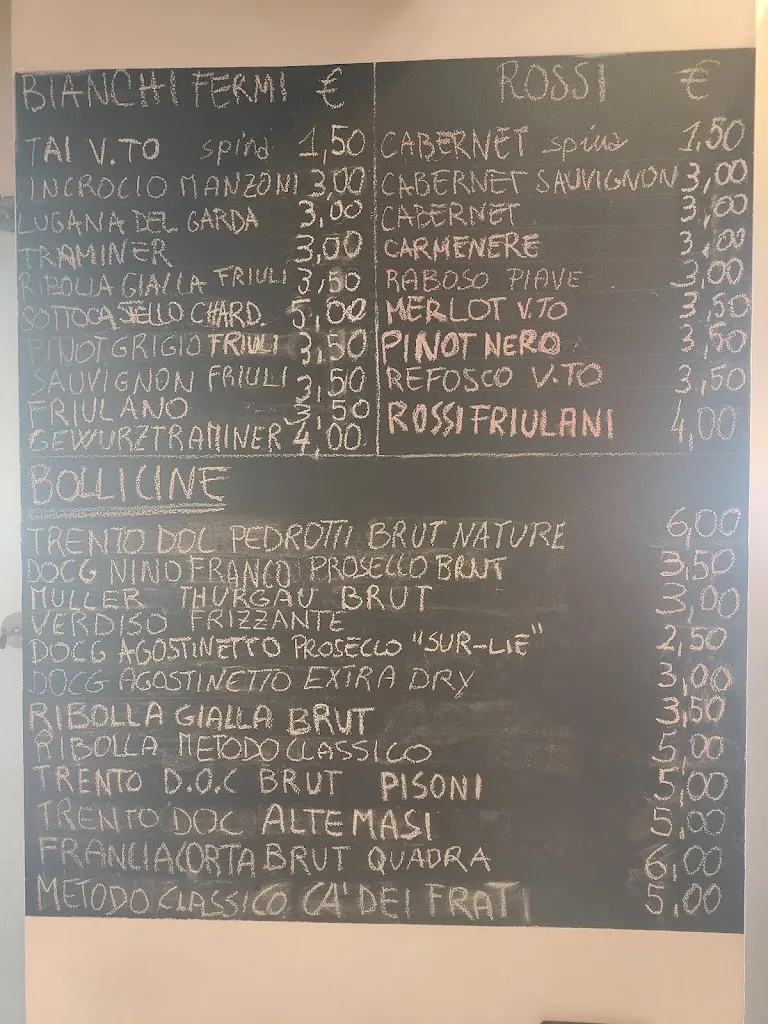 BIANCHI FERMI €
TAI V.TO spina 1,50
INCROCIO MANZONI 3,00
LUGANA DEL GARDA 3,00
TRAMINER 3,00
RIBOLLA GIALLA FRIULI 3,50
SOTTOCASELLO CHARD. 5,00
PINOT GRIGIO FRIULI 3,50
SAUVIGNON FRIULI 3,50
FRIULANO 3,50
GEWURZTRAMINER 4,00
ROSSI €
CABERNET spina 1,50
CABERNET SAUVIGNON 3,00
CABERNET 3,00
CARMENERE 3,00
RABOSO PIAVE 3,00
MERLOT V.TO 3,50
PINOT NERO 3,50
REFOSCO V.TO 3,50
ROSSI FRIULANI 4,00
BOLLICINE
TRENTO DOC PEDROTTI BRUT NATURE 6,00
DOCG NINO FRANCO PROSECCO BRUT 3,50
MULLER THURGAU BRUT 3,00
VERDISO FRIZZANTE
DOCG AGOSTINETTO PROSECCO "SUR-LIE" 2,50
DOCG AGOSTINETTO EXTRA DRY 3,00
RIBOLLA GIALLA BRUT 3,50
RIBOLLA METODO CLASSICO 5,00
TRENTO D.O.C BRUT PISONI 5,00
TRENTO DOC ALTEMASI 5,00
FRANCIACORTA BRUT QUADRA 6,00
METODO CLASSICO CA' DEI FRATI 5,00